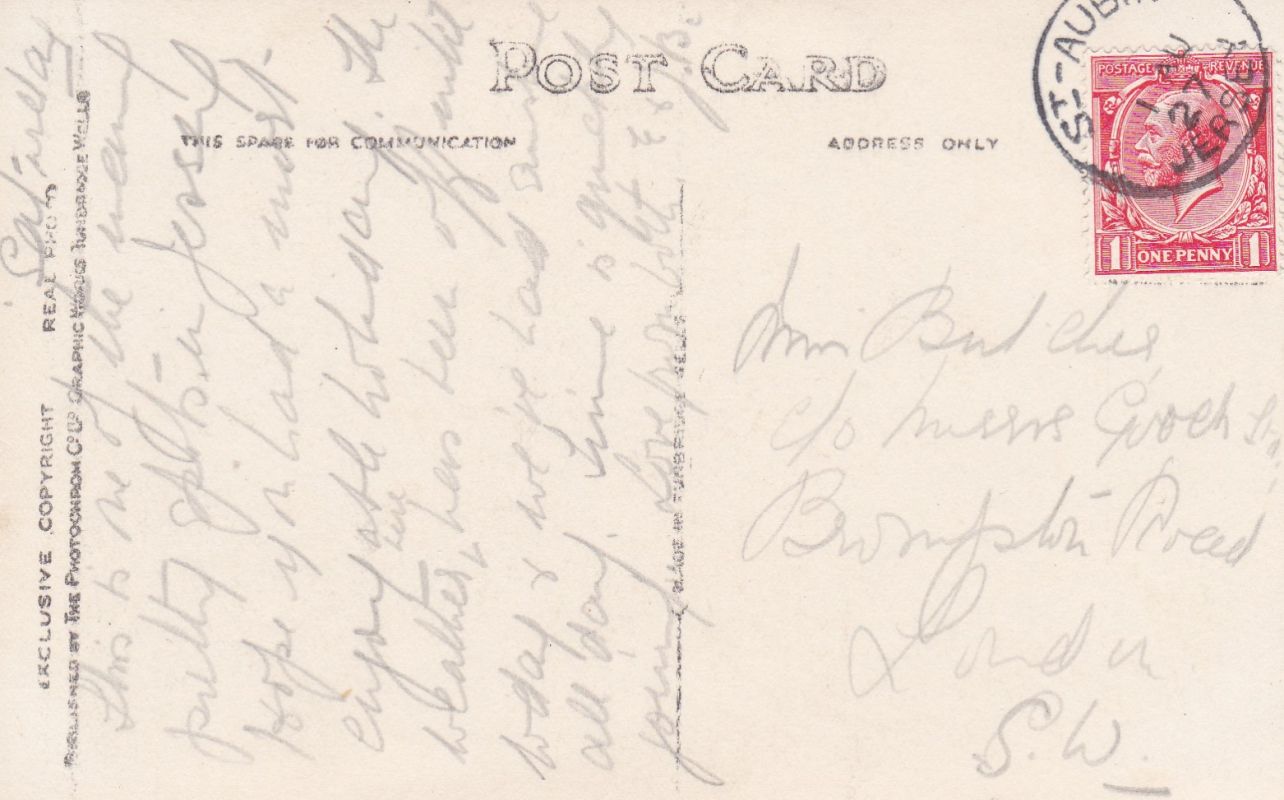 POST CARD
THIS SPACE FOR COMMUNICATION
ADDRESS ONLY
EXCLUSIVE COPYRIGHT REAL PHOTO
PUBLISHED BY THE PHOTOCHROM CO LTD GRAPHIC WORKS TUNBRIDGE WELLS
MADE IN TUNBRIDGE WELLS
ST-AUBIN
1 AU
27
JERSEY
POSTAGE REVENUE
1 ONE PENNY 1
Saturday
This is one of the many
pretty in Jersey
Hope you had a most
enjoyable holiday. The
weather here has been off quite
today & we've had
all day. Time is quickly
going. Love from
Miss Butcher
c/o Messrs Gooch
Brompton Road
London
S.W.